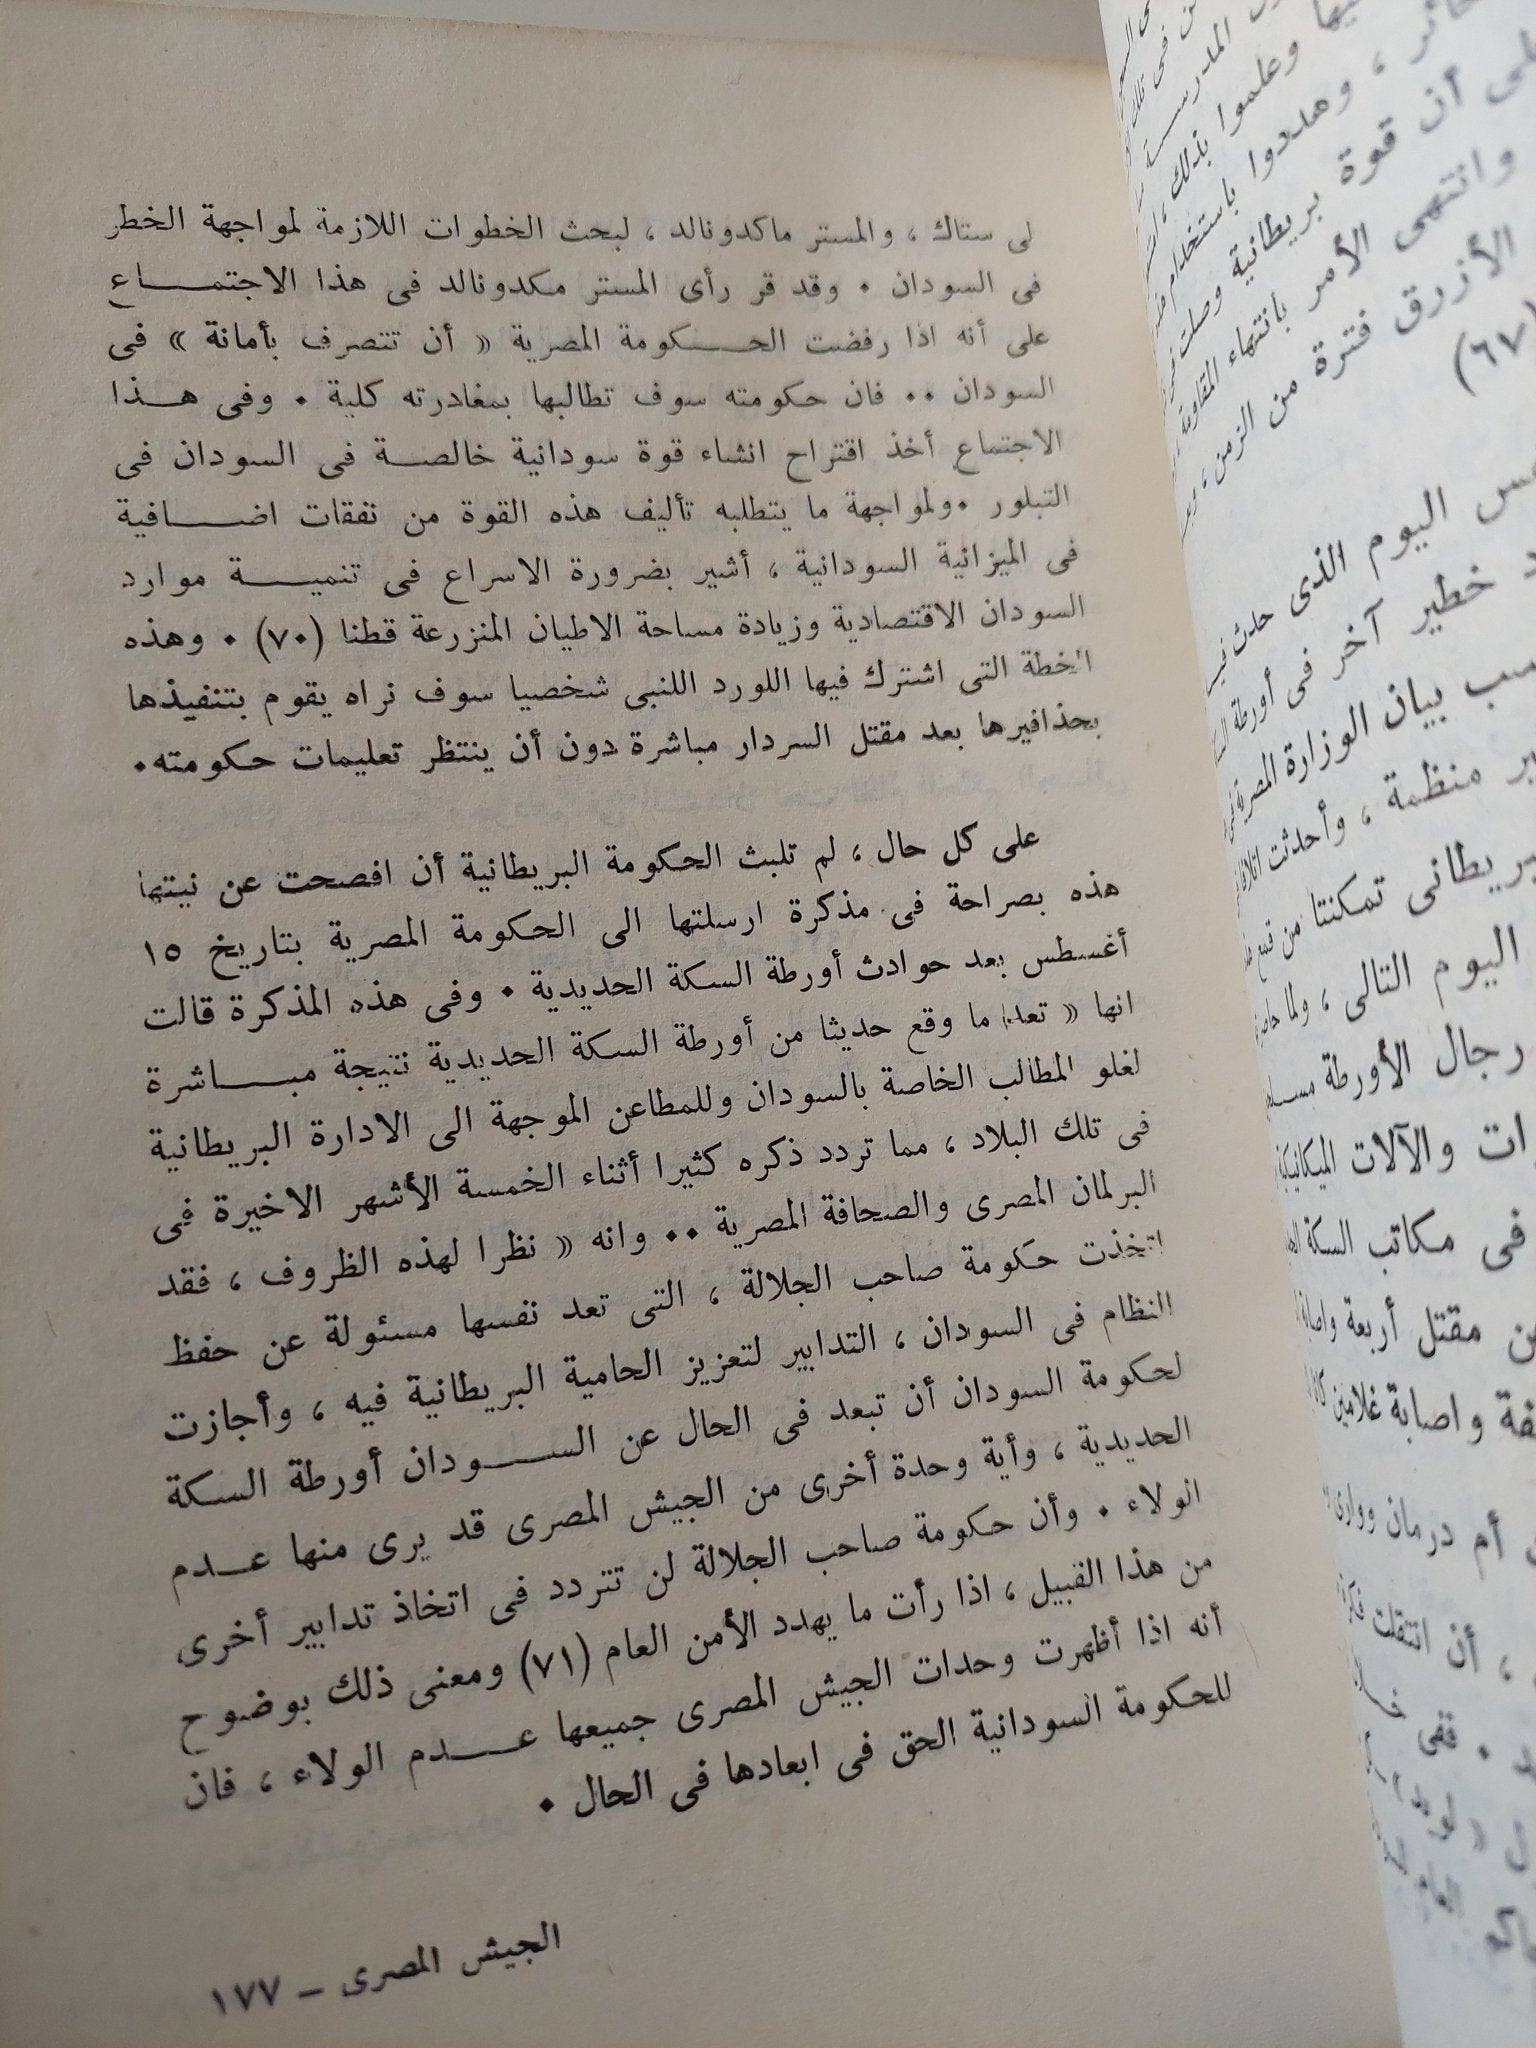 لى ستاك ، والمستر ماكدونالد ، لبحث الخطوات اللازمة لمواجهة الخطر
فى السودان . وقد قر رأى المستر مكدونالد فى هذا الاجتماع
على أنه اذا رفضت الحكومة المصرية « أن تتصرف بأمانة » فى
السودان .. فان حكومته سوف تطالبها بمغادرته كلية . وفى هذا
الاجتماع أخذ اقتراح انشاء قوة سودانية خالصة فى السودان فى
التبلور . ولمواجهة ما يتطلبه تأليف هذه القوة من نفقات اضافية
فى الميزانية السودانية ، أشير بضرورة الاسراع فى تنمية موارد
السودان الاقتصادية وزيادة مساحة الاطيان المنزرعة قطنا (٧٠) . وهذه
الخطة التى اشترك فيها اللورد اللنبى شخصيا سوف نراه يقوم بتنفيذها
بحذافيرها بعد مقتل السردار مباشرة دون أن ينتظر تعليمات حكومته .
على كل حال ، لم تلبث الحكومة البريطانية أن افصحت عن نيتها
هذه بصراحة فى مذكرة ارسلتها الى الحكومة المصرية بتاريخ ١٥
أغسطس بعد حوادث أورطة السكة الحديدية . وفى هذه المذكرة قالت
انها « تعد ما وقع حديثا من أورطة السكة الحديدية نتيجة مباشرة
لغلو المطالب الخاصة بالسودان وللمطاعن الموجهة الى الادارة البريطانية
فى تلك البلاد ، مما تردد ذكره كثيرا أثناء الخمسة الأشهر الاخيرة فى
البرلمان المصرى والصحافة المصرية .. وانه « نظرا لهذه الظروف ، فقد
اتخذت حكومة صاحب الجلالة ، التى تعد نفسها مسئولة عن حفظ
النظام فى السودان ، التدابير لتعزيز الحامية البريطانية فيه ، وأجازت
لحكومة السودان أن تبعد فى الحال عن السودان أورطة السكة
الحديدية ، وأية وحدة أخرى من الجيش المصرى قد يرى منها عدم
الولاء . وأن حكومة صاحب الجلالة لن تتردد فى اتخاذ تدابير أخرى
من هذا القبيل ، اذا رأت ما يهدد الأمن العام (٧١) ومعنى ذلك بوضوح
أنه اذا أظهرت وحدات الجيش المصرى جميعها عدم الولاء ، فان
للحكومة السودانية الحق فى ابعادها فى الحال .
الجيش المصرى – ١٧٧
المدرسة
وعلموا بذلك ،
، وهددوا باستخدام
أن قوة بريطانية وصلت
وانتهى الأمر بانتهاء المقاومة
الأزرق فترة من الزمن ،
(٦٧)
اليوم الذى حدث
خطير آخر فى أورطة
بيان الوزارة المصرية
منظمة ، وأحدثت
تمكنتا من قمع
اليوم التالى ، ولما
رجال الأورطة
والآلات الميكانيكية
فى مكاتب السكة
مقتل أربعة
واصابة غلامين
أم درمان
، أن انتقلت